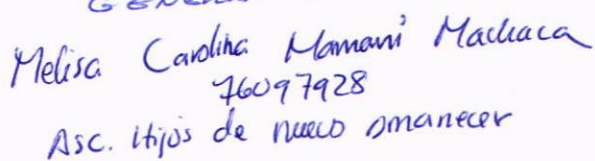 Melisa Carolina Mamani Machaca
76097928
Asc. Hijos de nuevo amanecer